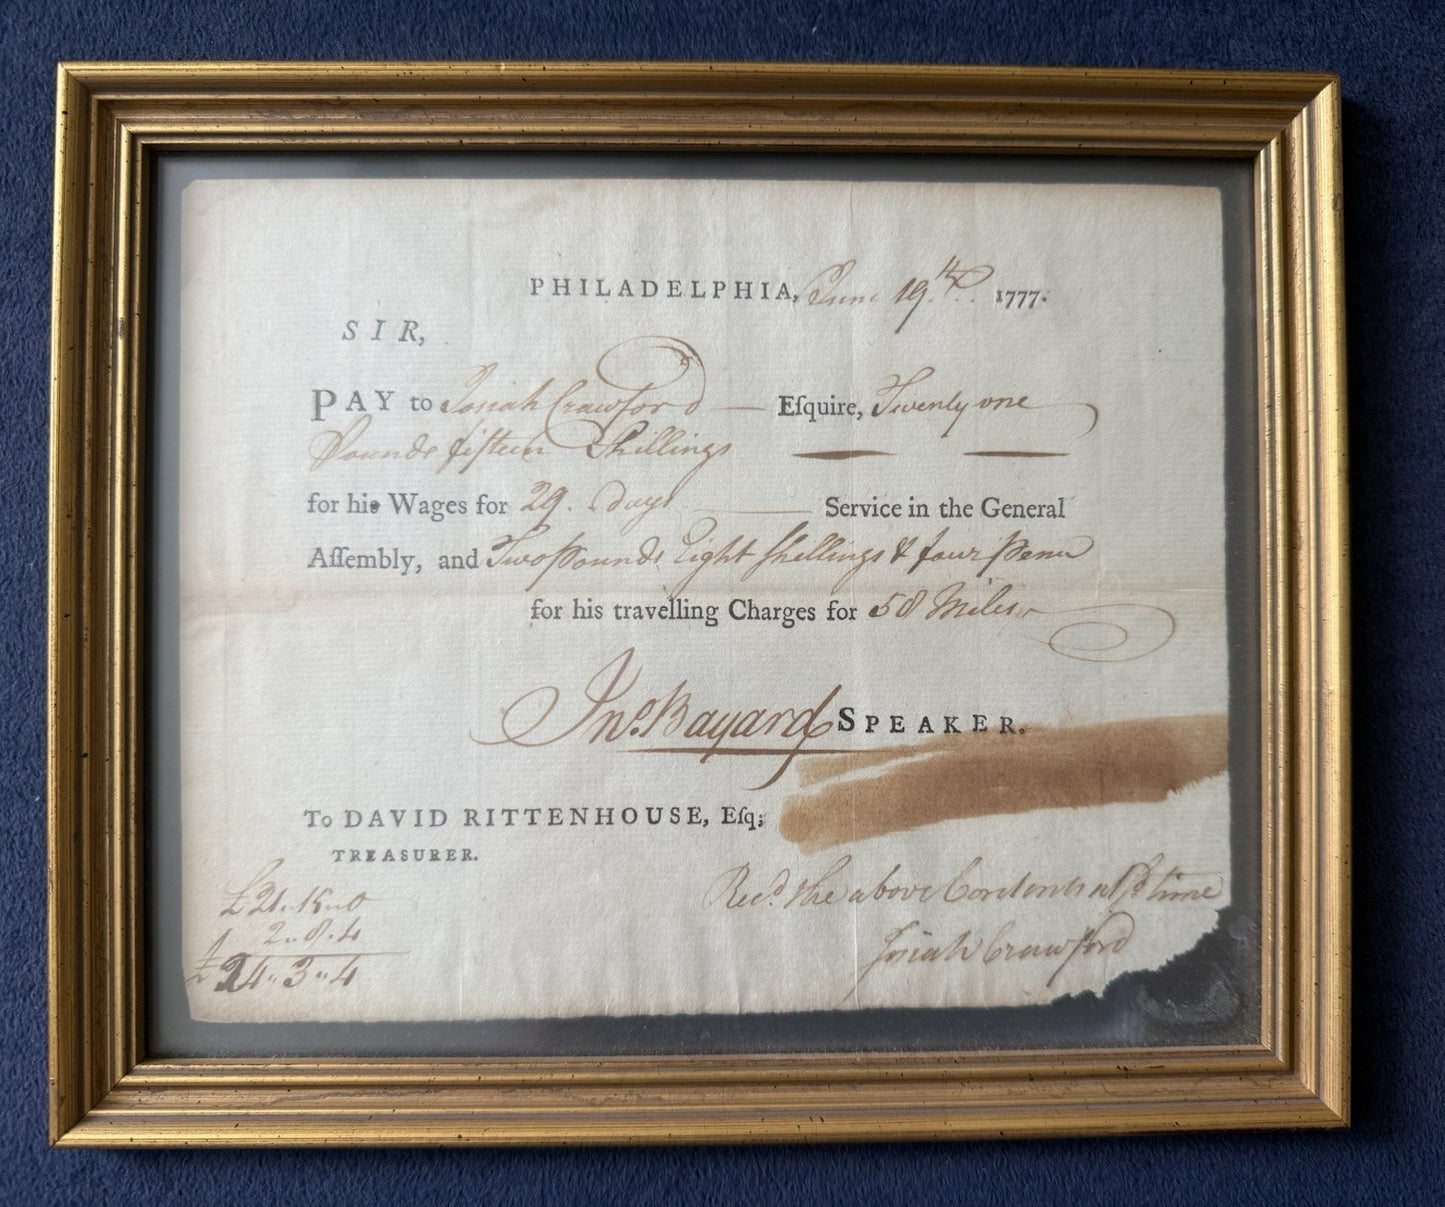 PHILADELPHIA, June 19.th 1777.
SIR,
PAY to Josiah Crawford — Eſquire, Twenty one
Pounds fifteen Shillings
for his Wages for 29. days Service in the General
Aſſembly, and Two Pounds Eight Shillings & four Pence
for his travelling Charges for 58 Miles
Jno. Bayard SPEAKER.
To DAVID RITTENHOUSE, Eſq;
TREASURER.
£21..15..0
2..8..4
£24..3..4
Recd. the above Contents at Sd. time
Josiah Crawford